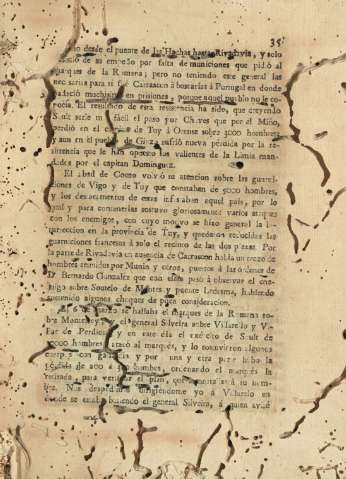 35
desde el puente de las Hachas hasta Rivadavia, y solo
de su empeño por falta de municiones que pidió al
marques de la Romana; pero no teniendo este general las
necesarias para sí fué Carrascon á buscarlas á Portugal en donde
padeció en prisiones, porque aquel pueblo no le co-
nocia. El resultado de esta ha sido, que creyendo
Soult serle mas fácil el paso por Chaves que por el Miño,
perdió en el de Tuy á Orense sobre 3000 hombres
y aun en el puente de Ginzo sufrió nueva pérdida por la re-
sistencia que le han opuesto los valientes de la Limia man-
dados por el capitan Dominguez.
El abad de Couto volvió su atencion sobre las guarni-
ciones de Vigo y de Tuy que constaban de 5000 hombres,
y los destacamentos de estas infestaban aquel país, por lo
qual y para contenerlas sostuvo gloriosamente varios ataques
con los enemigos, con cuyo motivo se hizo general la in-
surreccion en la provincia de Tuy, y quedaron reducidas las
guarniciones francesas á solo el recinto de las dos plazas. Por
la parte de Rivadavia en ausencia de Carrascon habla un trozo de
hombres armados por Munin y otros, puestos á las órdenes de
D. Bernardo Gonzalez que con ellos pasó á observar el ene-
migo sobre Soutelo de Montes y puente Ledesma, habiendo
sostenido algunos choques de poca consideracion.
se hallaba el marques de la Romana so-
bre Monterrey, el general Silveira sobre Villarelo y Vi-
lar de Perdices y en este dia el exército de Soult de
hombres atacó al marques, y lo sostuvieron algunos
cuerpos con y por una y otra parte hubo la
pérdida de 200 á hombres, ordenando el marques la
retirada para verificar el plan, que
Nos despedimos dirigiendome yo á Villarelo en
donde se estaba batiendo el general Silveira, á quien avisé